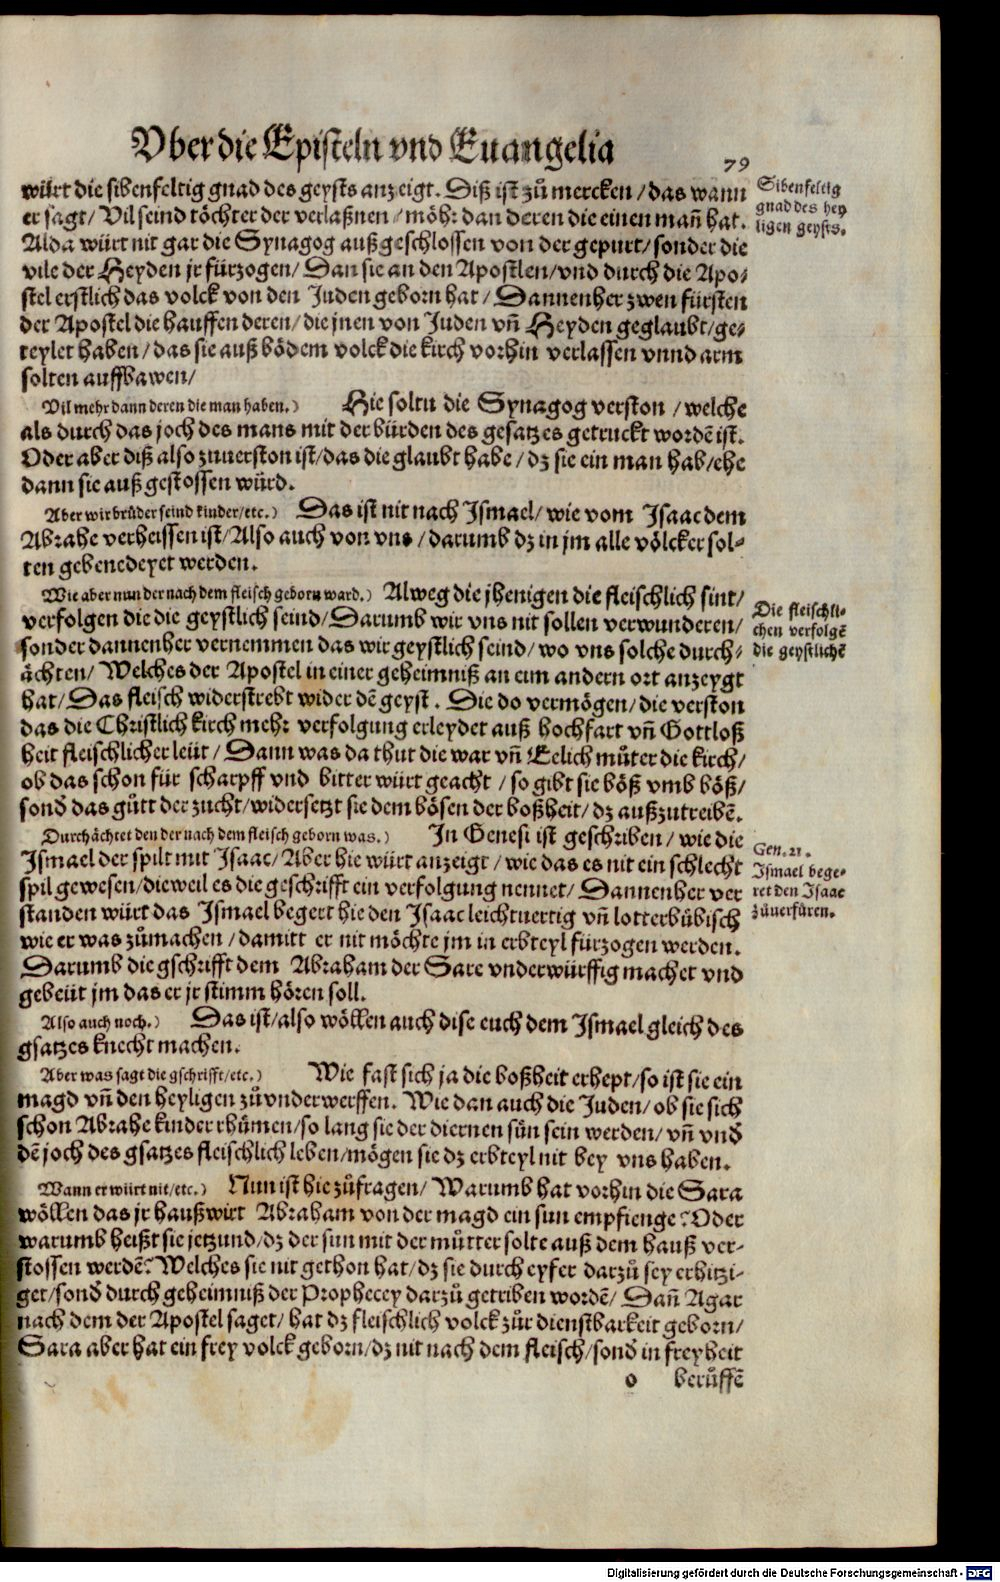 Vber die Episteln vnd Euangelia
79
würt die sibenfeltig gnad des geysts anzeigt. Diß ist zů mercken / das wann
er sagt / Vil seind töchter der verlaßnen / möhr dan deren die einen mañ hat.
Alda würt nit gar die Synagog außgeschlossen von der gepurt / sonder die
vile der Heyden jr fürzogen / Dan sie an den Apostlen / vnd durch die Apo-
stel erstlich das volck von den Juden geborn hat / Dannenher zwen fürsten
der Apostel die hauffen deren / die jnen von Juden vñ Heyden geglaubt / ge-
teylet haben / das sie auß bödem volck die kirch vorhin verlassen vnnd arm
solten auffbawen /
Vil mehr dann deren die man haben.) Hie soltu die Synagog verston / welche
als durch das joch des mans mit der bürden des gesatzes getruckt wordẽ ist.
Oder aber diß also zuuerston ist / das die glaubt habe / dz sie ein man hab / ehe
dann sie außgestossen würd.
Aber wir brüder seind kinder / etc.) Das ist nit nach Ismael / wie vom Isaac dem
Abrahe verheissen ist / Also auch von vns / darumb dz in jm alle völcker sol-
ten gebenedeyet werden.
Wie aber nun der nach dem fleisch geborn ward.) Alweg die jhenigen die fleischlich sint /
verfolgen die die geystlich seind / Darumb wir vns nit sollen verwunderen /
sonder dannenher vernemmen das wir geystlich seind / wo vns solche durch-
ächten / Welches der Apostel in einer geheimniß an eim andern ort anzeygt
hat / Das fleisch widerstrebt wider dẽ geyst. Die do vermögen / die verston
das die Christlich kirch mehr verfolgung erleydet auß hochfart vñ Gottloß
heit fleischlicher leüt / Dann was da thut die war vñ Eelich můter die kirch /
ob das schon für scharpff vnd bitter würt geacht / so gibt sie böß vmb böß /
sonđ das gůtt der zucht / widersetzt sie dem bösen der boßheit / dz außzutreibẽ.
Durchächtet den der nach dem fleisch geborn was.) In Genesi ist geschriben / wie die
Ismael der spilt mit Isaac / Aber hie würt anzeigt / wie das es nit ein schlecht
spil gewesen / dieweil es die geschrifft ein verfolgung nennet / Dannenher ver
standen würt das Ismael begert hie den Isaac leichtuertig vñ lotterbübisch
wie er was zůmachen / damitt er nit möchte jm in erbteyl fürzogen werden.
Darumb die gschrifft dem Abraham der Sare vnderwürffig machet vnd
gebeüt jm das er jr stimm hören soll.
Also auch noch.) Das ist / also wöllen auch dise euch dem Ismael gleich des
gsatzes knecht machen.
Aber was sagt die gschrifft / etc.) Wie fast sich ja die boßheit erhept / so ist sie ein
magd vñ den heyligen zů vnderwerffen. Wie dan auch die Juden / ob sie sich
schon Abrahe kinder rhümen / so lang sie der diernen sün sein werden / vñ vnđ
dẽ joch des gsatzes fleischlich leben / mögen sie dz erbteyl nit bey vns haben.
Wann er würt nit / etc.) Nun ist hie zůfragen / Warumb hat vorhin die Sara
wöllen das jr haußwirt Abraham von der magd ein sun empfienge? Oder
warumb heißt sie jetzund / dz der sun mit der můtter solte auß dem hauß ver-
stossen werdẽ? Welches sie nit gethon hat / dz sie durch eyfer darzů sey erhitzi-
get / sonđ durch geheimniß der Prophecey darzů getriben wordẽ / Dañ Agar
nach dem der Apostel saget / hat dz fleischlich volck zůr dienstbarkeit geborn /
Sara aber hat ein frey volck geborn / dz nit nach dem fleisch / sonđ in freyheit
o berůffẽ
Sibenfeltig
gnad des hey
ligen geysts.
Die fleischli-
chen verfolgẽ
die geystlichẽ
Gen. 21.
Ismael bege-
ret den Isaac
zůuerfüren.
Digitalisierung gefördert durch die Deutsche Forschungsgemeinschaft - DFG